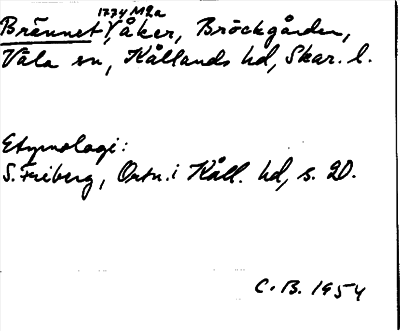 1774 M2a
Brännet, Våker, Bröckgården,
Våla sn, Kållands hd, Skar. l.
Etymologi:
S. Friberg, Ortn. i Kåll. hd, s. 20.
C. B. 1954